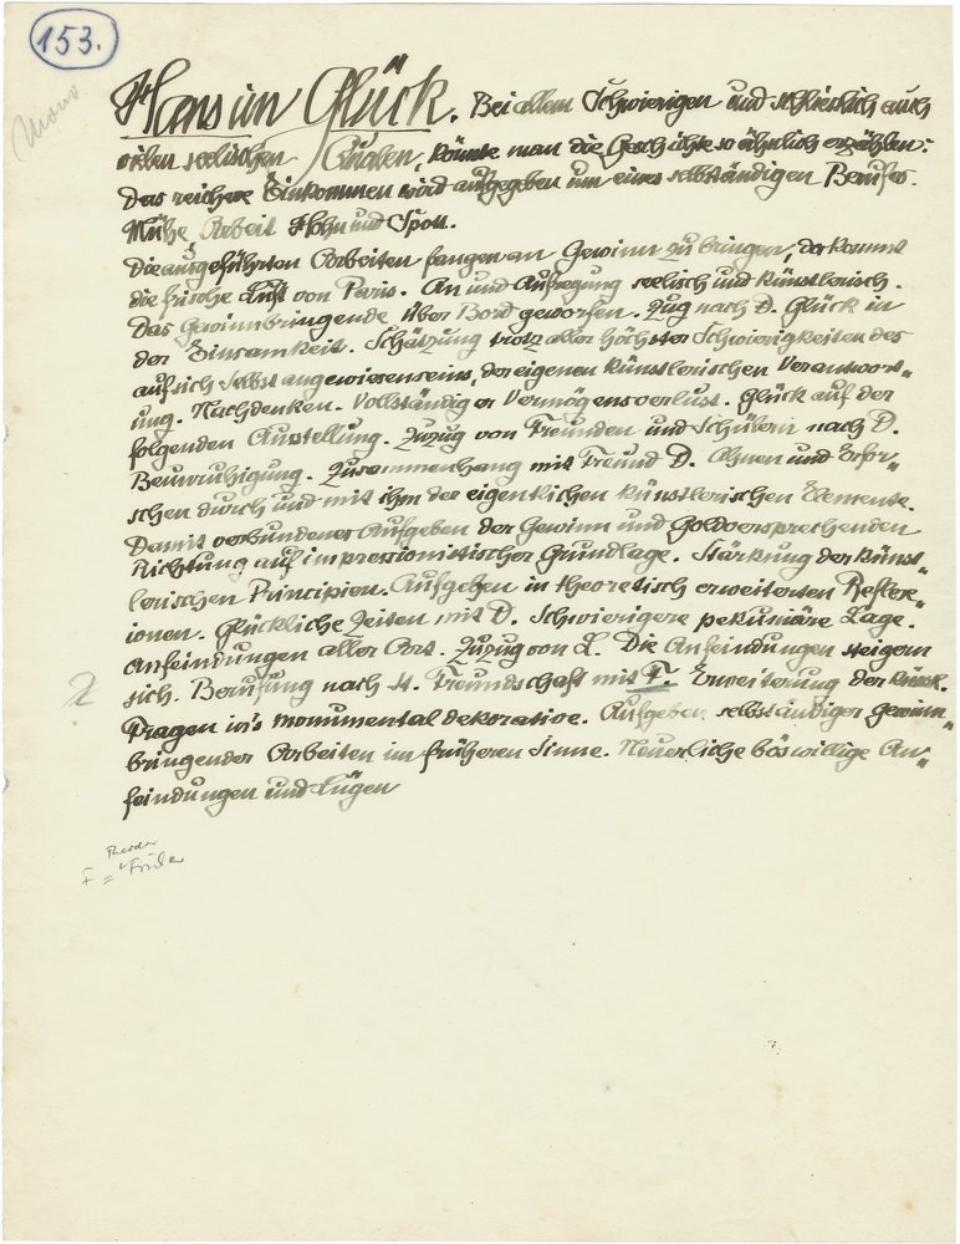 153.
Hans im Glück. Bei allem Schwierigen und schliesslich auch
vielen seelischen Qualen, könnte man die Geschichte so ähnlich erzählen:
Das reichere Einkommen wird aufgegeben um eines selbständigen Berufes.
Mühe, Arbeit Hohn und Spott.
Die ausgeführten Arbeiten fangen an Gewinn zu bringen, da kommt
die frische Luft von Paris. An und Aufregung seelisch und künstlerisch.
Das Gewinnbringende über Bord geworfen. Zug nach D. Glück in
der Einsamkeit. Schätzung trotz aller höchster Schwierigkeiten des
auf sich selbst angewiesenseins, der eigenen künstlerischen Verantwort„
ung. Nachdenken. Vollständiger Vermögensverlust. Glück auf der
folgenden Austellung. Zuzug von Freunden und Schülern nach D.
Beunruhigung. Zusammenhang mit Freund D. Ahnen und Erfor„
schen durch und mit ihm der eigentlichen künstlerischen Elemente.
Damit verbundenes Aufgeben der Gewinn und Goldversprechenden
Richtung auf impressionistischer Grundlage. Stärkung der künst„
lerischen Principien. Aufgehen in theoretisch erweiterten Reflex„
ionen. Glückliche Zeiten mit D. Schwierigere pekuniäre Lage.
Anfeindungen aller Art. Zuzug von L. Die Anfeindungen steigern
sich. Berufung nach St. Freundschaft mit F. Erweiterung der künstl.
Fragen in's monumental dekorative. Aufgeben selbständiger gewinn„
bringender Arbeiten im früheren Sinne. Neuerliche böswillige An„
feindungen und Lügen
Theodor
F =